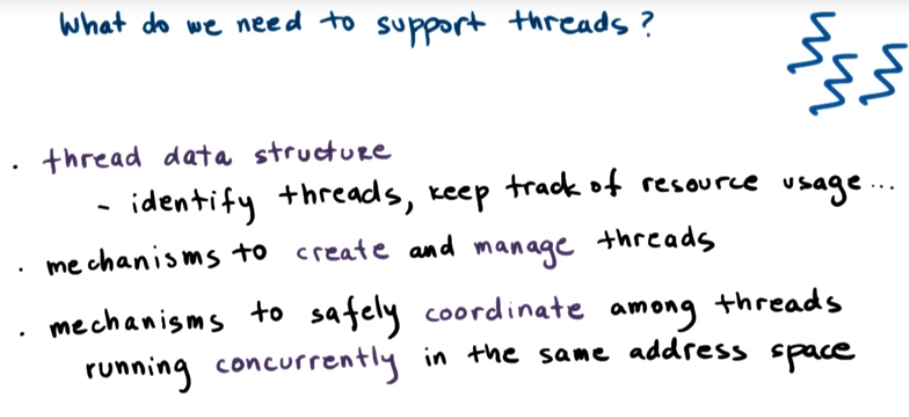 What do we need to support threads?
· thread data structure
- identify threads, keep track of resource usage...
· mechanisms to create and manage threads
· mechanisms to safely coordinate among threads
running concurrently in the same address space